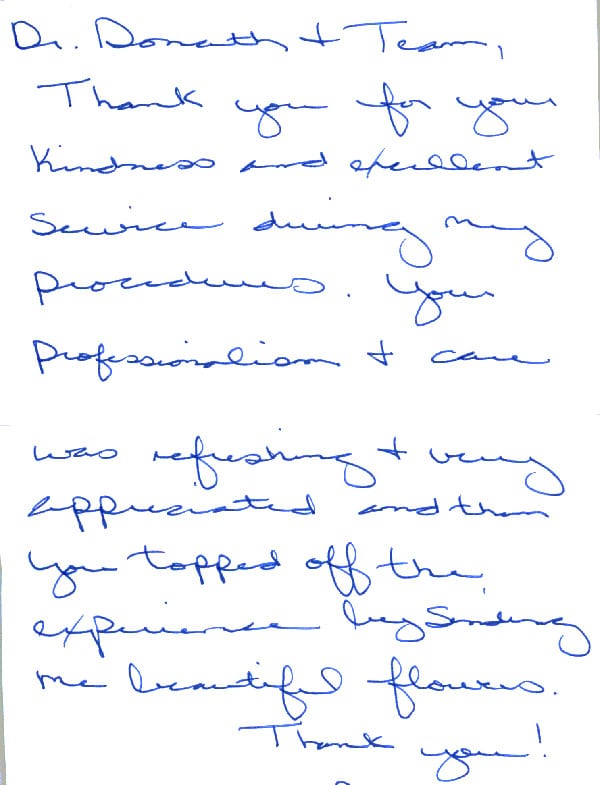 Dr. Donath + Team,
Thank you for your
kindness and excellent
service during my
procedures. Your
professionalism + care
was refreshing + very
appreciated and then
you topped off the
experience by sending
me beautiful flowers.
Thank you!